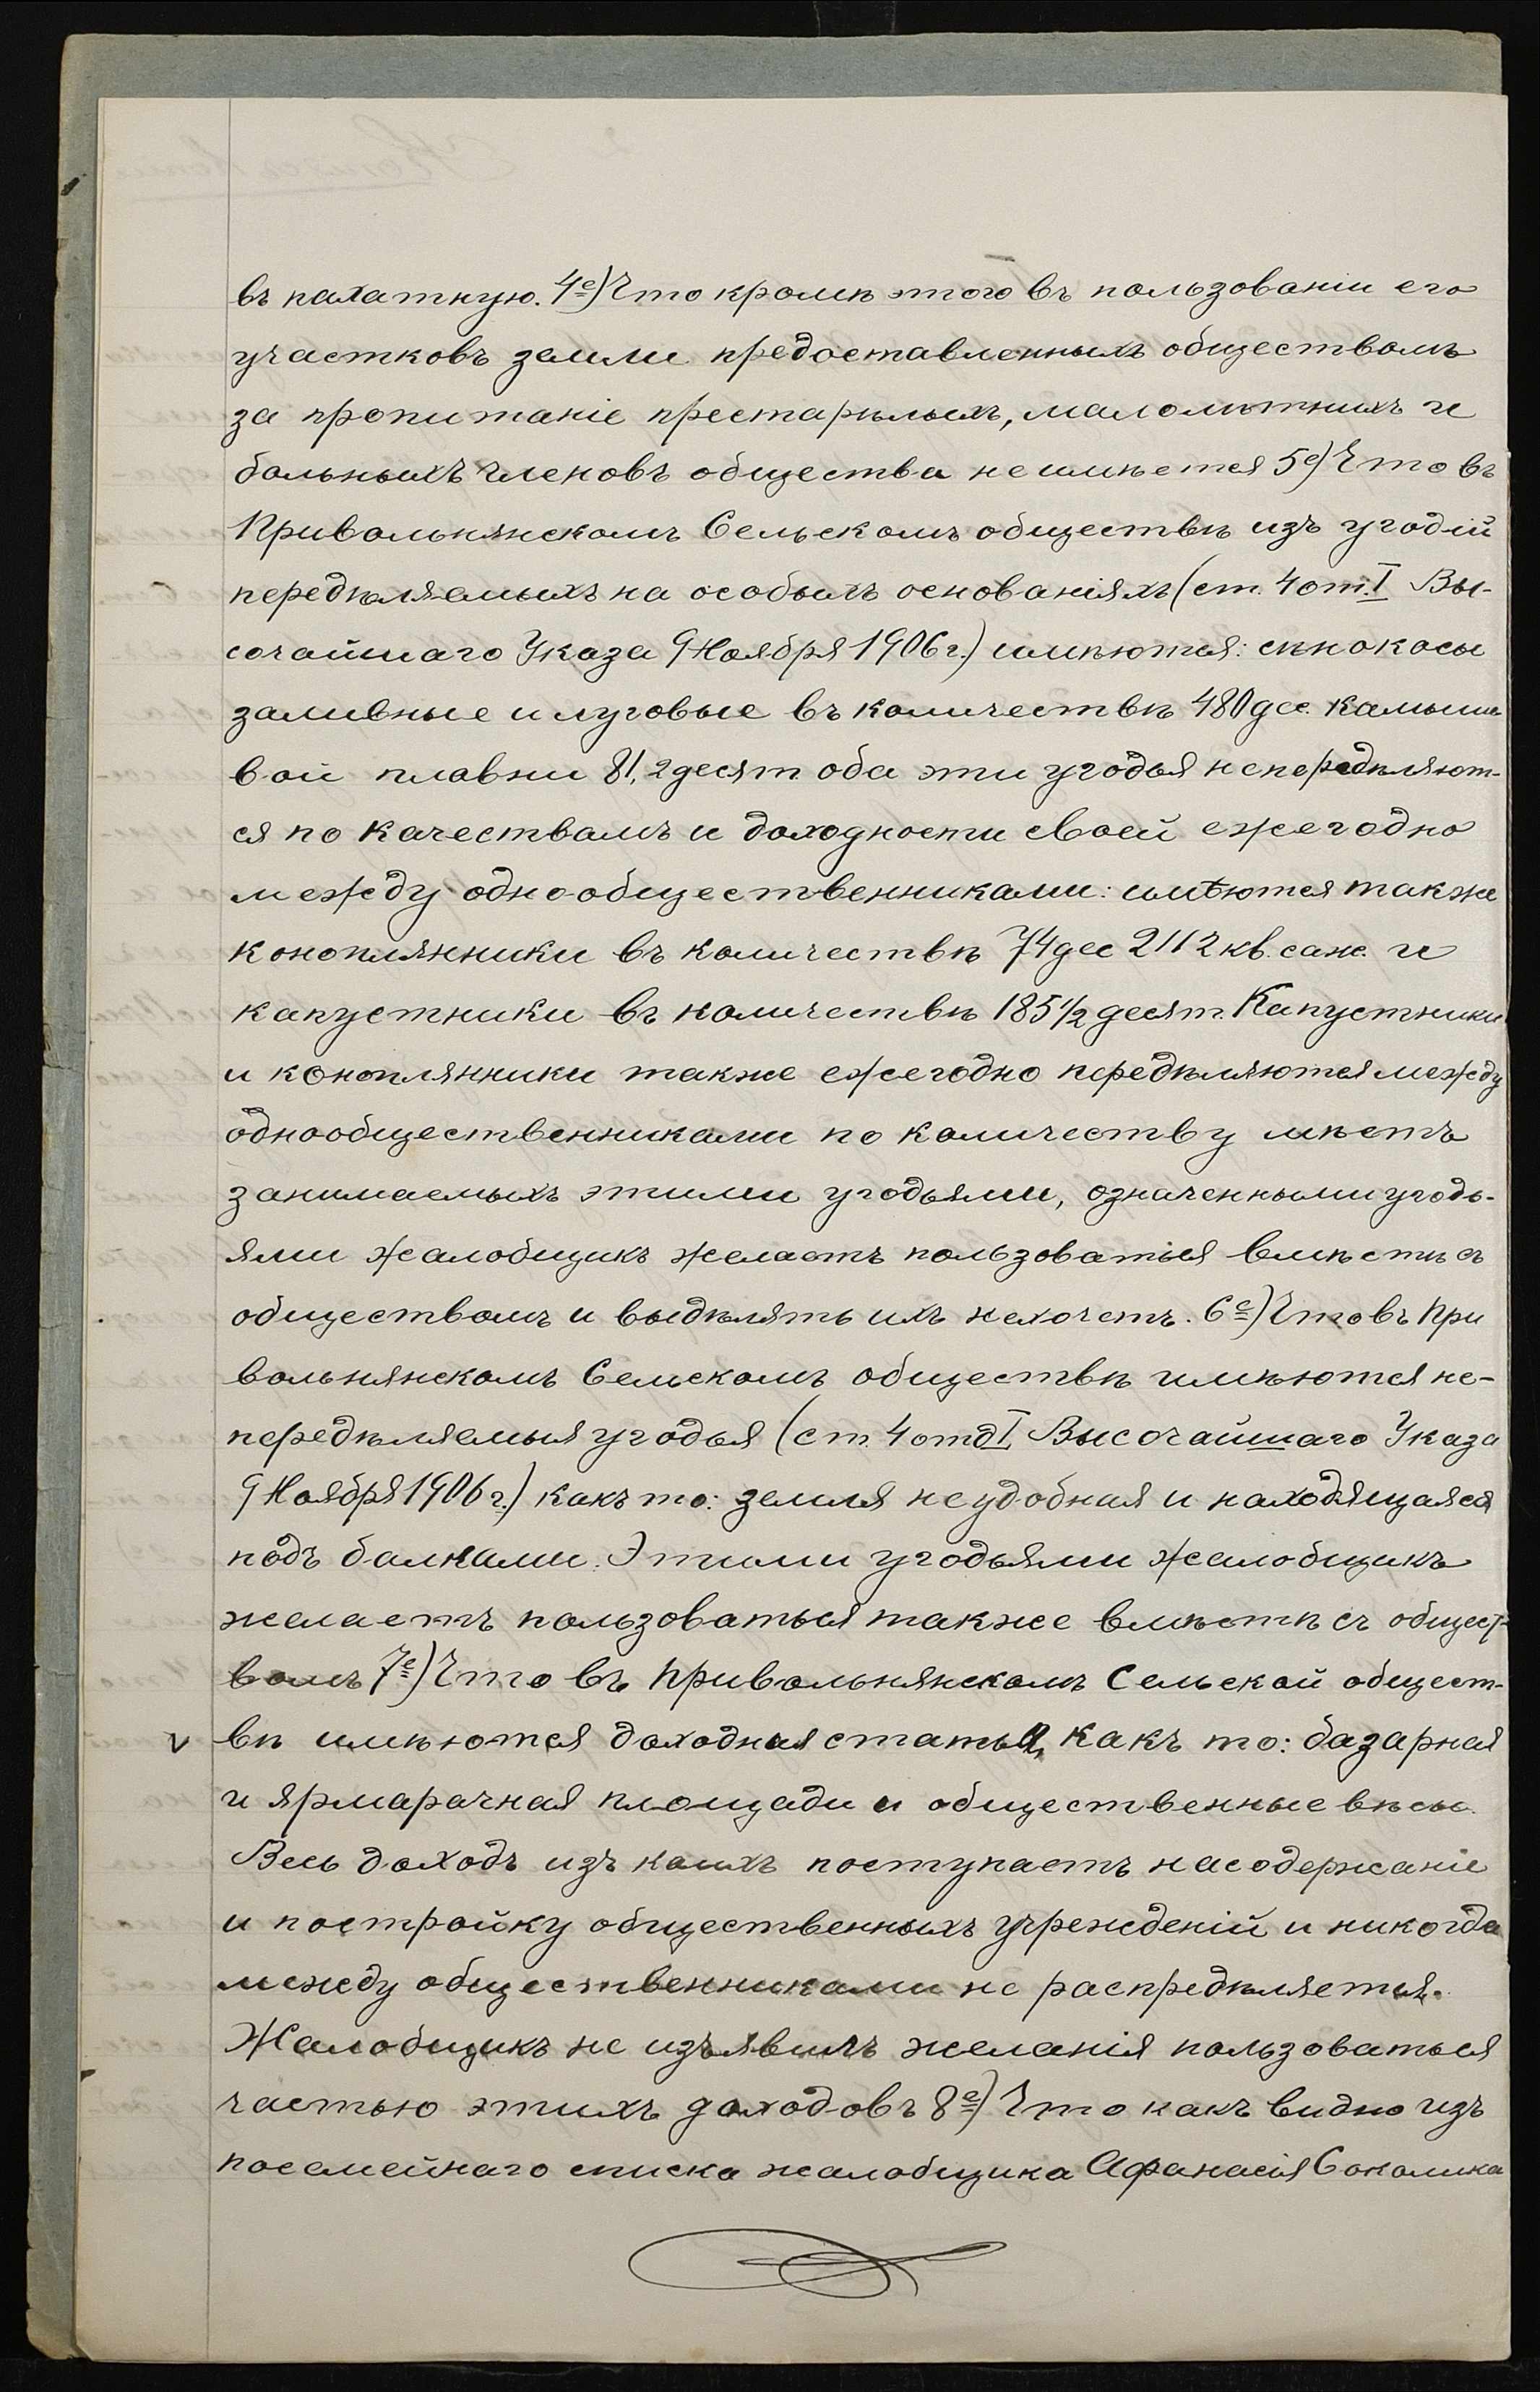 въ пахатную. 4е) Что кромѣ этого въ пользованіи его
участковъ земли предоставленныхъ обществомъ
за пропитаніе престарѣлыхъ, малолѣтнихъ и
больныхъ членовъ общества не имѣется 5е) Что въ
Привольнянскомъ Сельскомъ обществѣ изъ угодій
передѣляемыхъ на особыхъ основаніяхъ (ст. 4 от. I Вы-
сочайшаго Указа 9 Ноября 1906 г.) имѣются: сѣнокосы
заливные и луговые въ количествѣ 480 дес. камыше
вой плавни 81,2 десят оба эти угодья не передѣляют-
ся по качествамъ и доходности своей ежегодно
между однообщественниками: имѣются также
коноплянники въ количествѣ 74 дес 2112 кв. саж. и
капустники въ количествѣ 185 1/2 десят. Капустники
и коноплянники также ежегодно передѣляются между
однообщественниками по количеству мѣстъ
занимаемыхъ этими угодьями, означенными угодь-
ями жалобщикъ желаетъ пользоваться вмѣстѣ съ
обществомъ и выдѣлять ихъ не хочетъ. 6е) Что въ При
вольнянскомъ Сельскомъ обществѣ имѣются не-
передѣляемыя угодья (ст. 4 отд I, Высочайшаго Указа
9 Ноября 1906 г.) какъ то: земля неудобная и находящаяся
подъ балками. Этими угодьями жалобщикъ
желаетъ пользоваться также вмѣстѣ съ общест-
вомъ 7е) Что въ Привольнянскомъ Сельской общест-
v вѣ имѣются доходныя статьи, какъ то: базарная
и ярмарачная площади и общественные вѣсы.
Весь доходъ изъ коихъ поступаетъ на содержаніе
и постройку общественныхъ учрежденій и никогда
между общественниками не распредѣляется.
Жалобщикъ не изъявилъ желанія пользоваться
частью этихъ доходовъ 8е) Что какъ видно изъ
посемейнаго списка жалобщика Афанасія Соколика